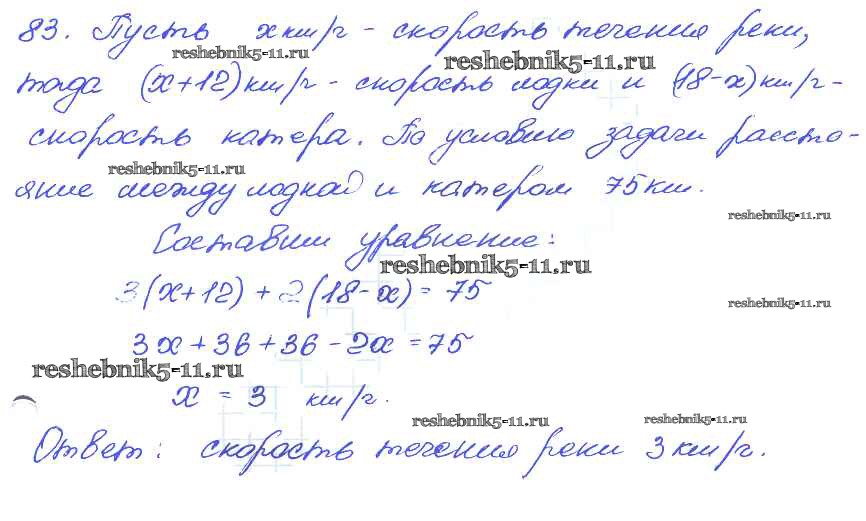 83. Пусть x км/ч - скорость течения реки,
reshebnik5-11.ru
reshebnik5-11.ru
тогда (x+12) км/ч - скорость лодки и (18-x) км/ч -
скорость катера. По условию задачи рассто-
reshebnik5-11.ru
яние между лодкой и катером 75 км.
reshebnik5-11.ru
Составим уравнение:
reshebnik5-11.ru
3(x+12) + 2(18-x) = 75
reshebnik5-11.ru
3x + 36 + 36 - 2x = 75
reshebnik5-11.ru
x = 3 км/ч.
reshebnik5-11.ru
reshebnik5-11.ru
Ответ: скорость течения реки 3 км/ч.